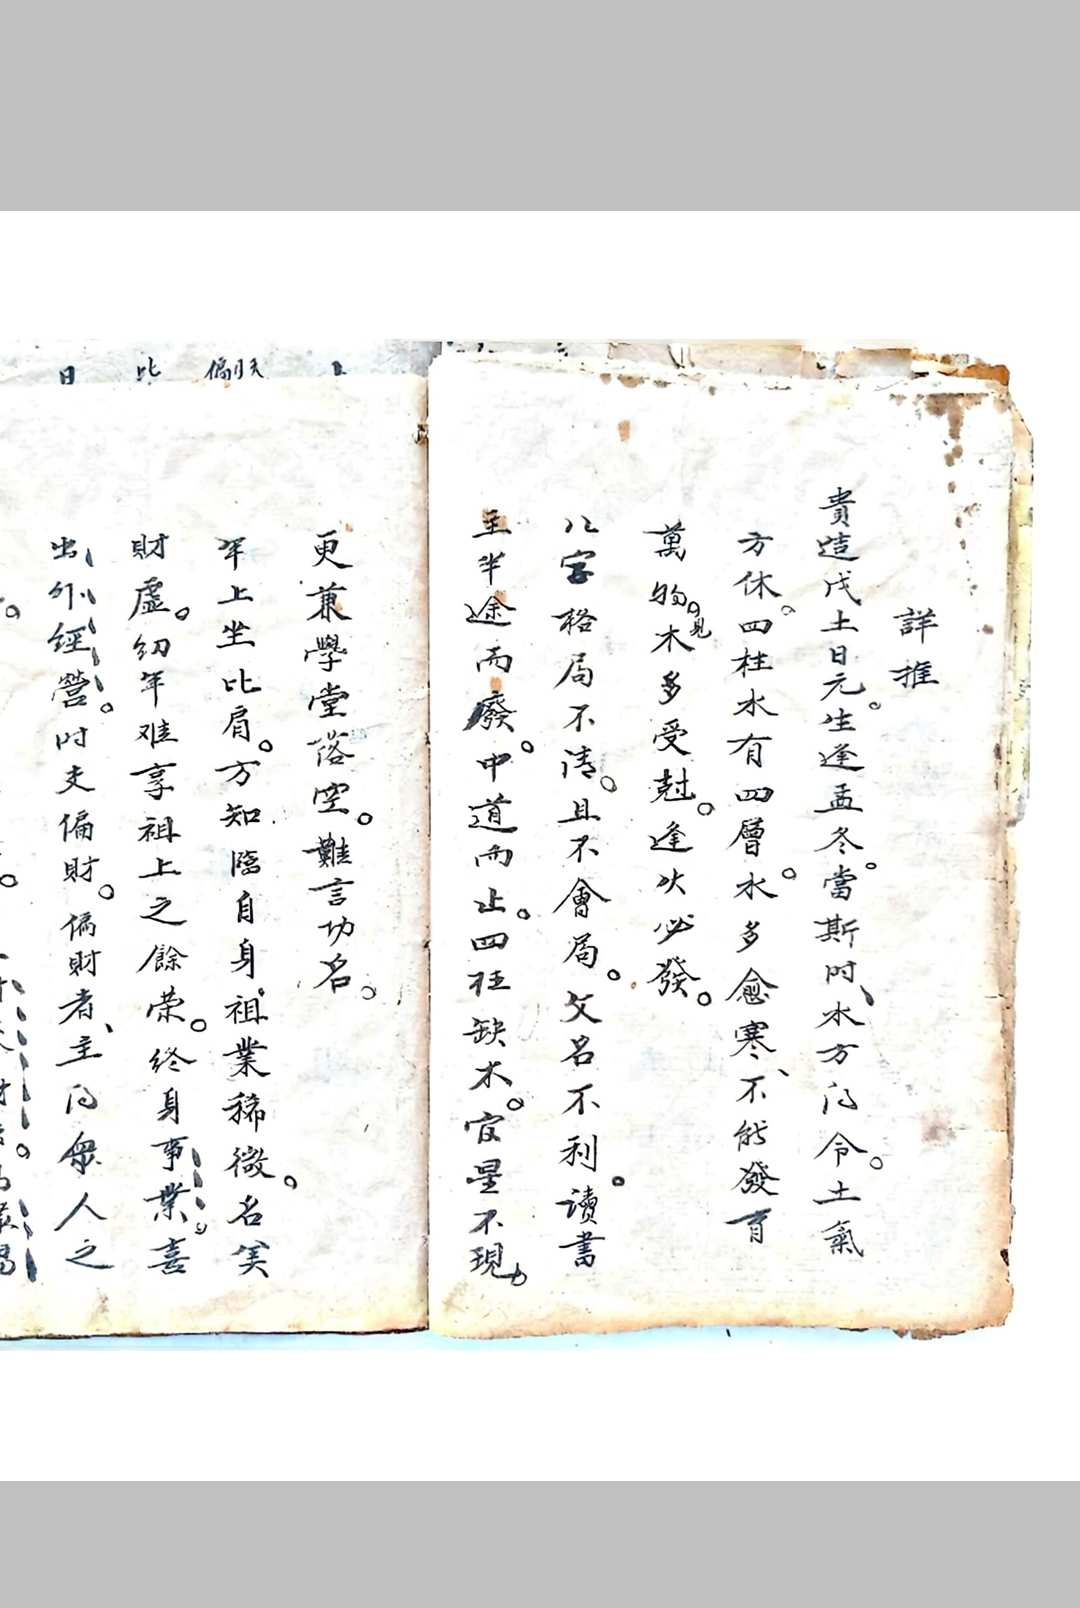 詳推
貴造戊土日元。生逢孟冬。當斯时、水方而令。土氣
方休。四柱水有四層。水多愈寒、不能發育
萬物。見木多受尅。逢火必發。
八字格局不清。且不會局。文名不利。讀書
主半途而廢。中道而止。四柱缺木。官星不現。
更兼學堂落空。難言功名。
年上坐比肩。方知臨自身、祖業稀微。名美
財虛。幼年难享祖上之餘荣。終身事業喜
出外經營。时支偏財。偏財者、主而衆人之